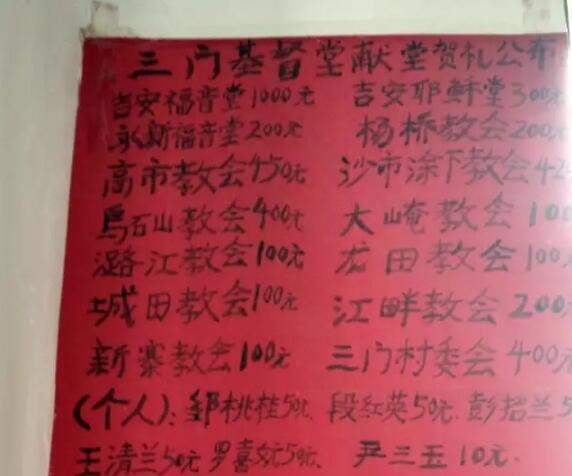 三门基督堂献堂贺礼公布
吉安福音堂1000元 吉安耶稣堂300元
永新福音堂200元 杨桥教会200元
高市教会450元 沙市涂下教会42
乌石山教会400元 大崦教会100
潞江教会100元 龙田教会100
城田教会100元 江畔教会200元
新寨教会100元 三门村委会400元
(个人):邹桃桂50元 段红英50元 彭招兰5
王清兰50元 罗喜妧50元 尹三五10元.